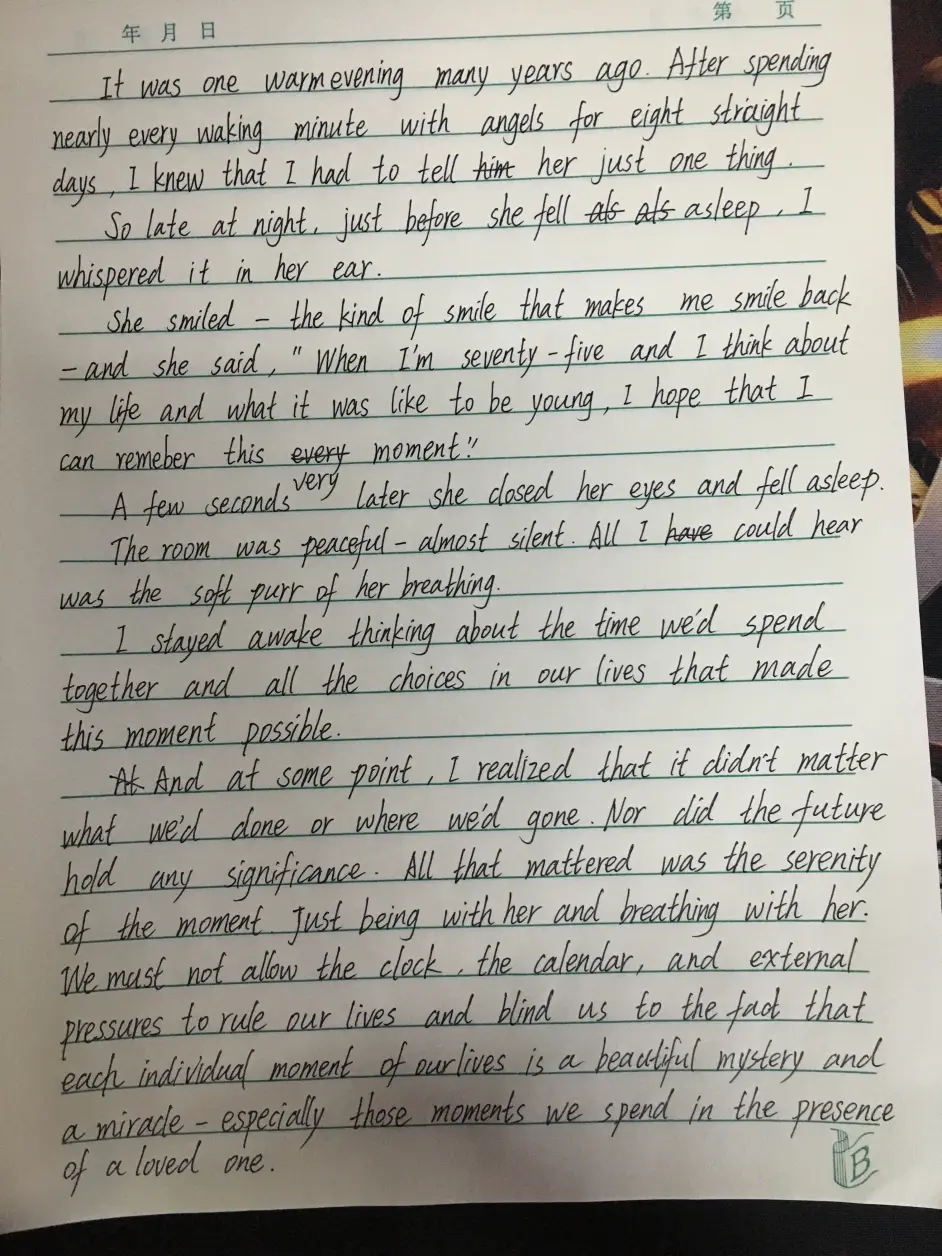 年 月 日 第 页
It was one warm evening many years ago. After spending
nearly every waking minute with angels for eight straight
days, I knew that I had to tell him her just one thing.
So late at night, just before she fell als als asleep, I
whispered it in her ear.
She smiled - the kind of smile that makes me smile back
- and she said, "When I'm seventy-five and I think about
my life and what it was like to be young, I hope that I
can remeber this every moment."
very
A few seconds later she closed her eyes and fell asleep.
The room was peaceful - almost silent. All I have could hear
was the soft purr of her breathing.
I stayed awake thinking about the time we'd spend
together and all the choices in our lives that made
this moment possible.
At And at some point, I realized that it didn't matter
what we'd done or where we'd gone. Nor did the future
hold any significance. All that mattered was the serenity
of the moment. Just being with her and breathing with her.
We must not allow the clock, the calendar, and external
pressures to rule our lives and blind us to the fact that
each individual moment of our lives is a beautiful mystery and
a miracle - especially those moments we spend in the presence
of a loved one.
B